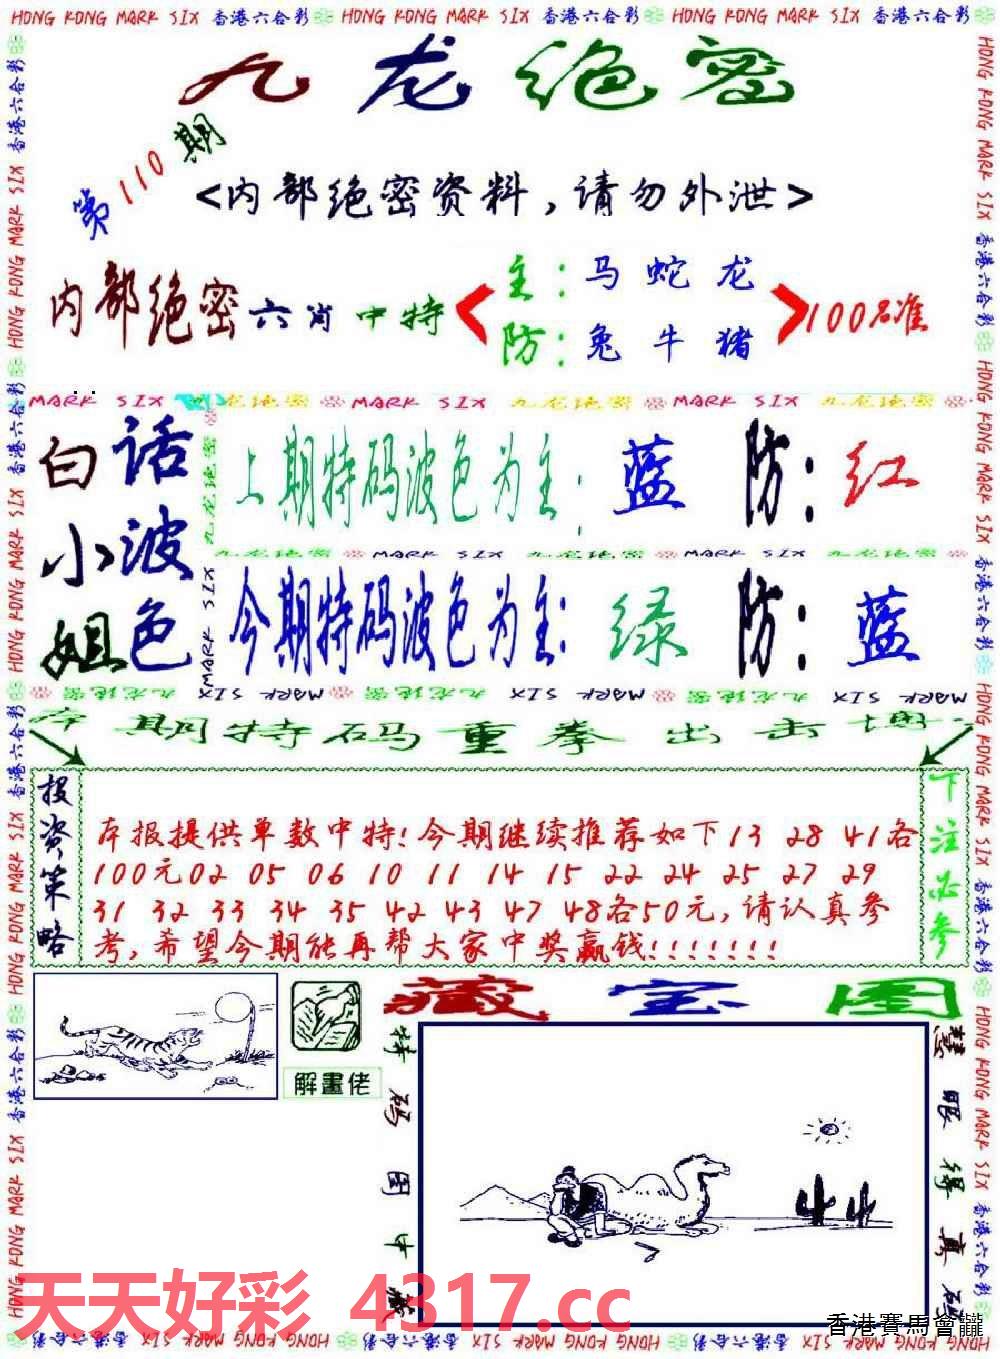 HONG KONG MARK SIX 香港六合彩 HONG KONG MARK SIX 香港六合彩 HONG KONG MARK SIX 香港六合彩
九龙绝密
第110期
<内部绝密资料,请勿外泄>
内部绝密六肖中特
主:马 蛇 龙
防:兔 牛 猪
100%准
MARK SIX 九龙绝密 MARK SIX 九龙绝密 MARK SIX 九龙绝密
白小姐
话波色
上期特码波色为主:蓝 防:红
九龙绝密 MARK SIX 九龙绝密 MARK SIX 九龙绝密
今期特码波色为主:绿 防:蓝
本期特码重拳出击
投资策略
本报提供单数中特!今期继续推荐如下13 28 41各
100元02 05 06 10 11 14 15 22 24 25 27 29
31 32 33 34 35 42 43 47 48各50元,请认真参
考,希望今期能再帮大家中奖赢钱!!!!!!!
下注必参
藏宝图
解畫佬
特码图中藏
慧眼得真码
天天好彩 4317.cc
香港賽馬會